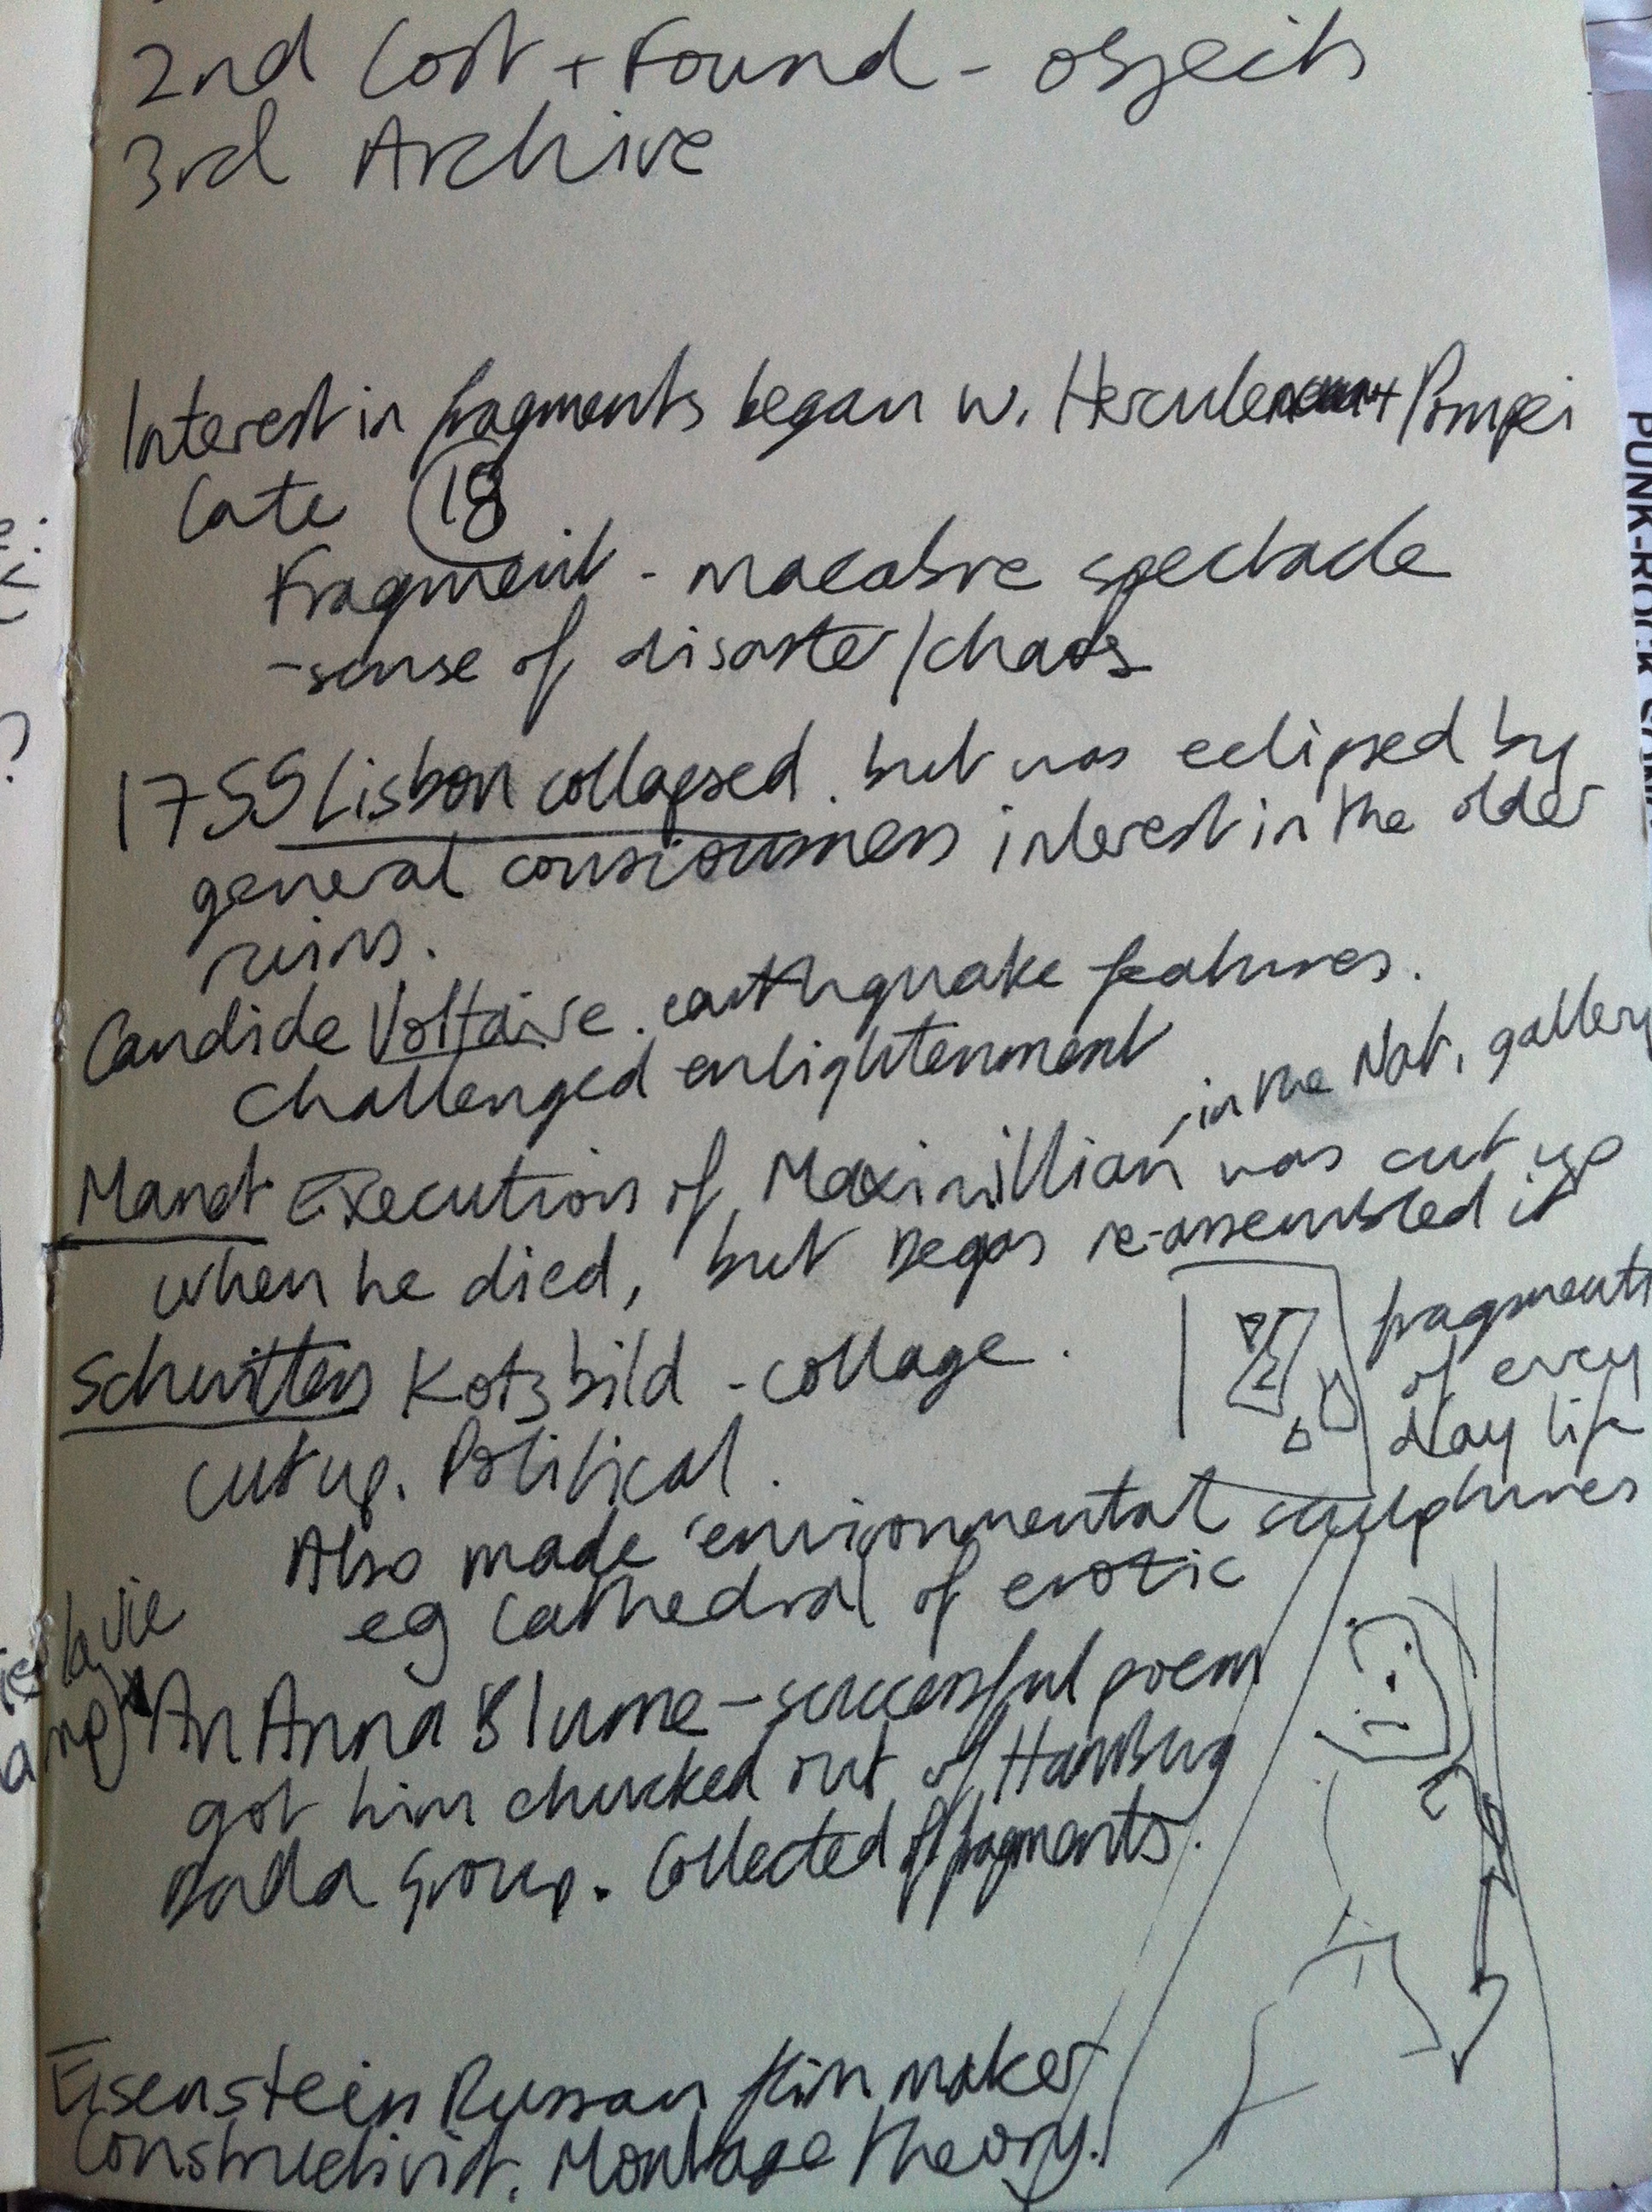 2nd Lost + Found - objects
3rd Archive
Interest in fragments began w. Herculeneum + Pompei
late 18
Fragment - macabre spectacle
- sense of disaster/chaos
1755 Lisbon collapsed. but was eclipsed by
general consciousness interest in the older
ruins.
Candide Voltaire. earthquake features.
challenged enlightenment
- in the Nat. gallery
Manet Execution of Maximillian was cut up
when he died, but Degas re-assembled it
Schwitters Kotzbild - collage.
fragments
of every
day life
cut up. Political.
Also made 'environmental sculptures
eg Cathedral of erotic
la vie
An Anna Blume - successful poem
got him chucked out of Hamburg
Dada group. Collected of fragments.
Eisenstein Russian film maker
Constructivist. Montage theory.
PUNK-ROCK